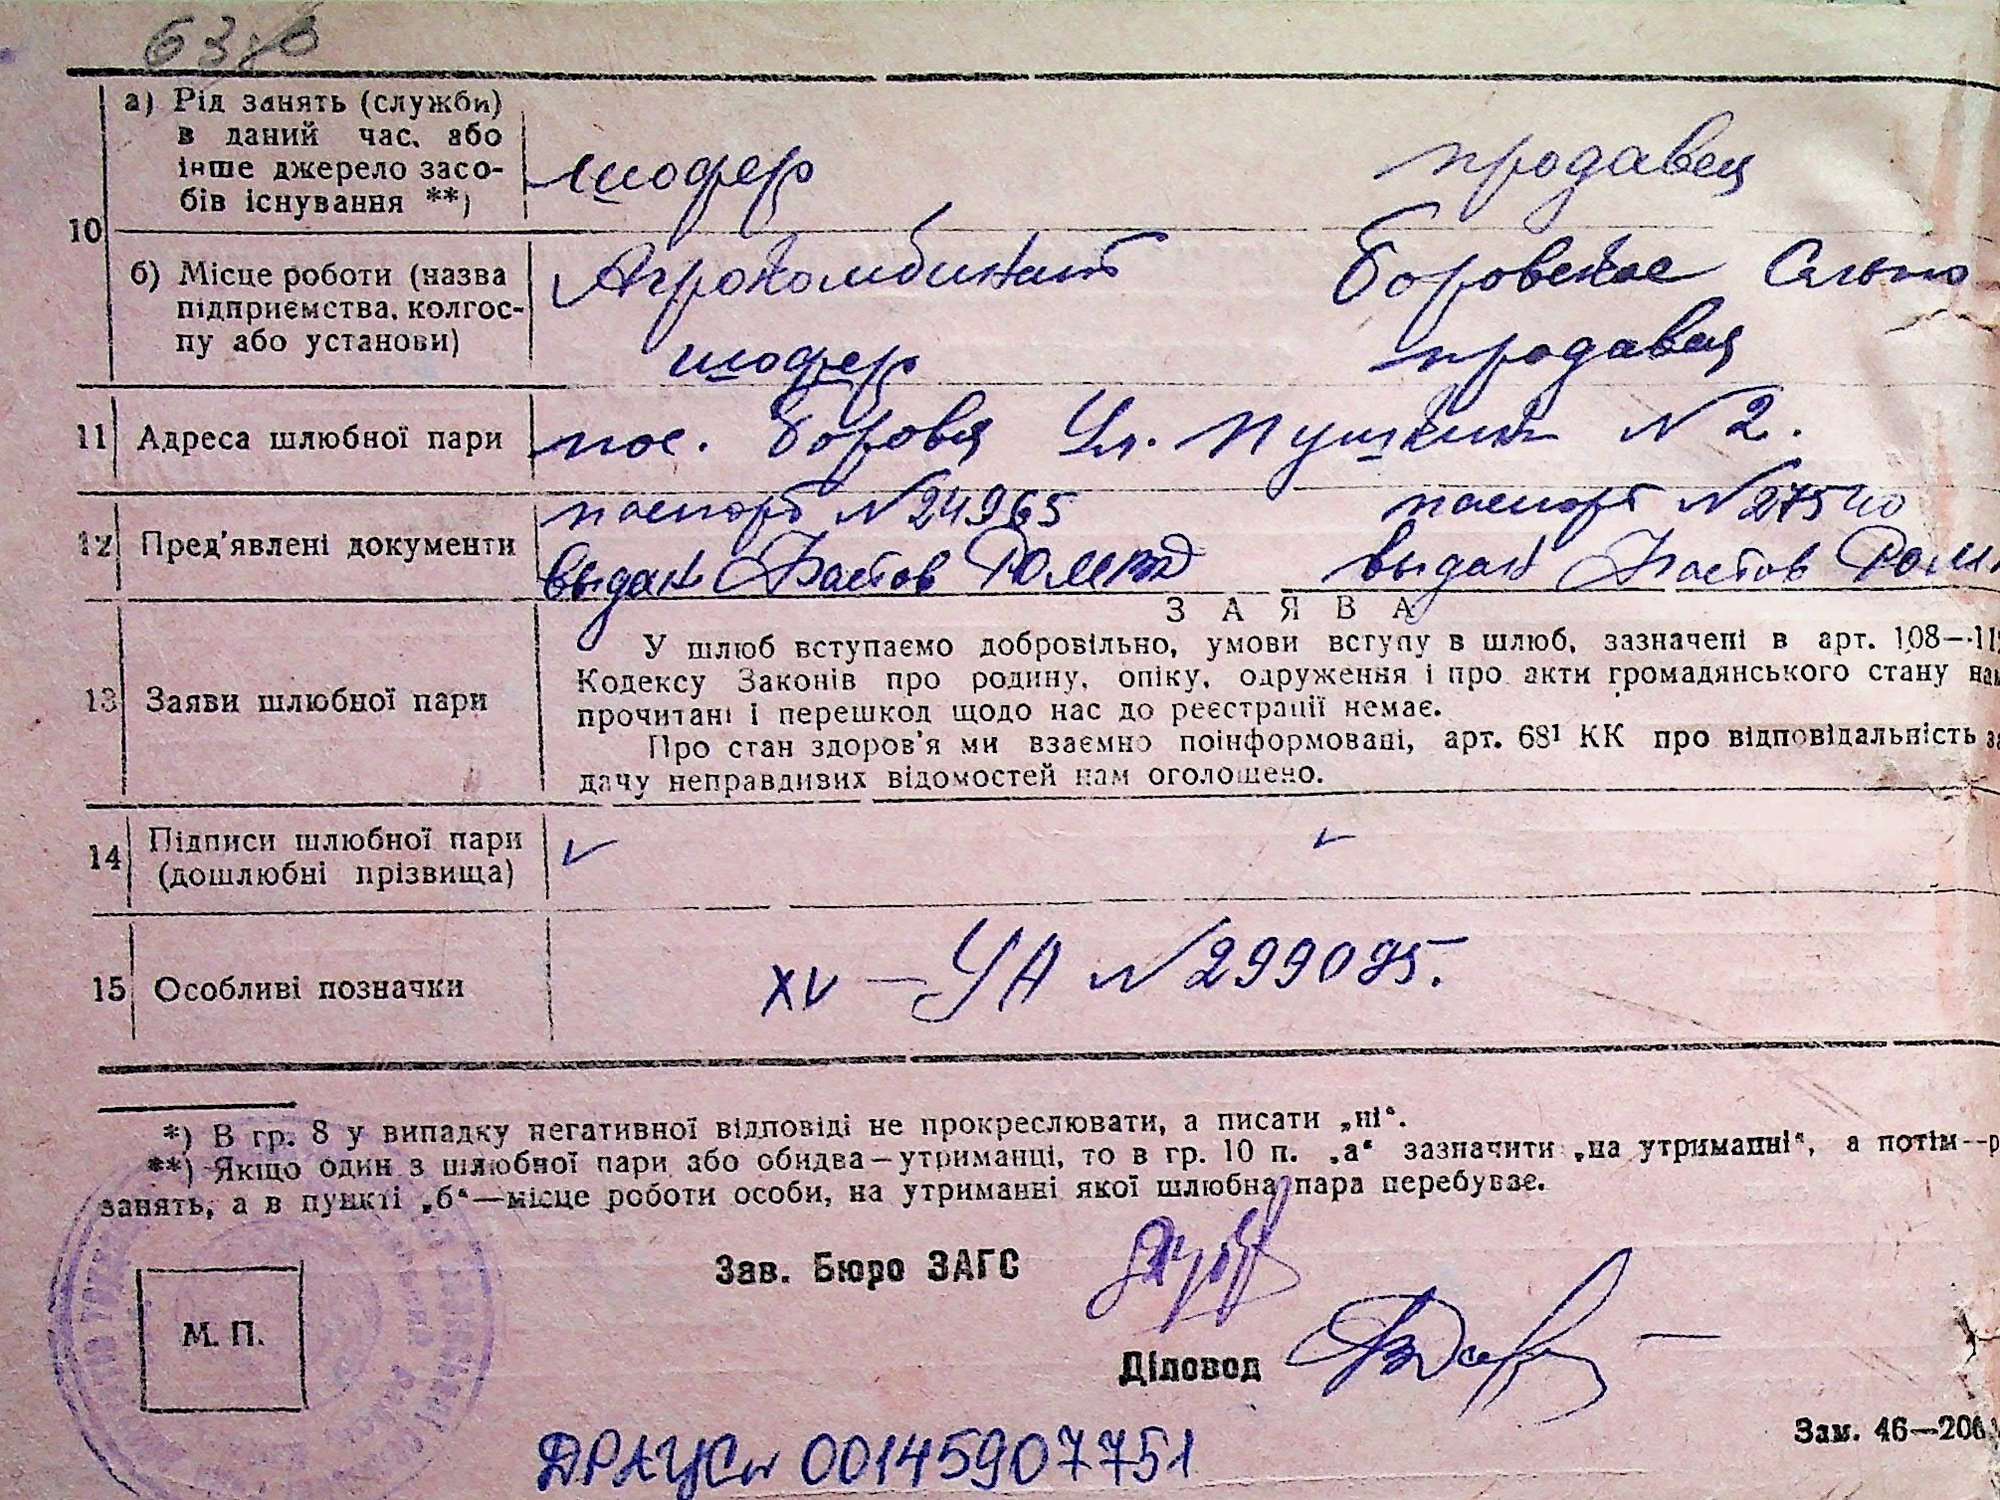 10
а) Рід занять (служби)
в даний час, або
інше джерело засо-
бів існування **)
шофер продавец
б) Місце роботи (назва
підприємства, колгос-
пу або установи)
Агрокомбинат Боровское Сельпо
шофер продавец
11 Адреса шлюбної пари
пос. Боровая Ул. Пушкин N 2.
12 Пред'явлені документи
паспорт N 24965 паспорт N 27540
выдан Фастов РОМВД выдан Фастов РОМ
З А Я В А
13 Заяви шлюбної пари
У шлюб вступаємо добровільно, умови вступу в шлюб, зазначені в арт. 108—11
Кодексу Законів про родину, опіку, одруження і про акти громадянського стану нам
прочитані і перешкод щодо нас до реєстрації немає.
Про стан здоров'я ми взаємно поінформовані, арт. 68¹ КК про відповідальність за
дачу неправдивих відомостей нам оголошено.
14 Підписи шлюбної пари
(дошлюбні прізвища)
15 Особливі позначки
XV — УА N 299095.
*) В гр. 8 у випадку негативної відповіді не прокреслювати, а писати „ні“.
**) Якщо один з шлюбної пари або обидва—утриманці, то в гр. 10 п. „а“ зазначити „на утриманні“, а потім—р
занять, а в пункті „б“—місце роботи особи, на утриманні якої шлюбна пара перебуває.
Зав. Бюро ЗАГС
М. П.
Діловод
Зам. 46—206
ДРАЦСу 00145907751